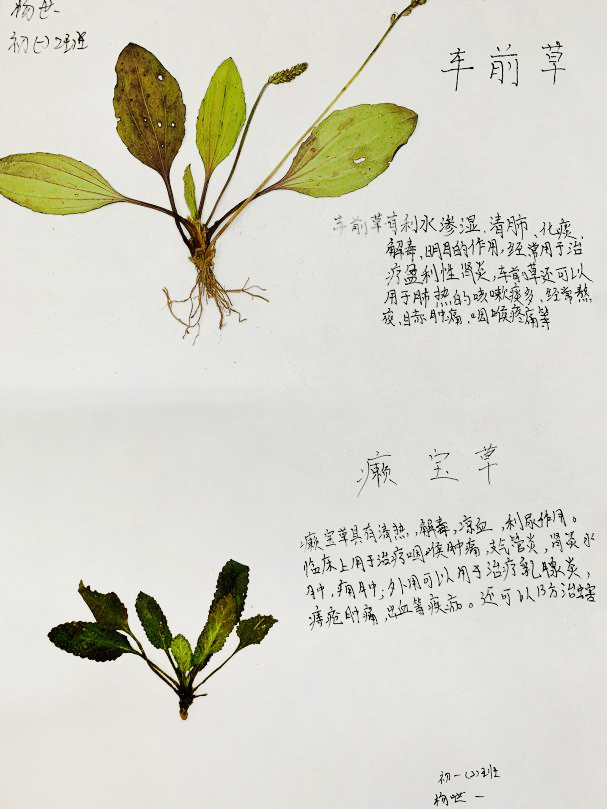 杨世一
初(一)2班
车前草
车前草有利水渗湿、清肺、化痰、
解毒、明目的作用,经常用于治
疗盈利性肾炎,车前草还可以
用于肺热的咳嗽痰多、经常熬
夜,目赤肿痛、咽喉疼痛等
癞宝草
癞宝草具有清热,解毒,凉血,利尿作用。
临床上用于治疗咽喉肿痛,支气管炎,肾炎水
肿,痈肿;外用可以用于治疗乳腺炎,
痔疮肿痛,出血等疾病。还可以防治虫害
初一(2)班
杨世一